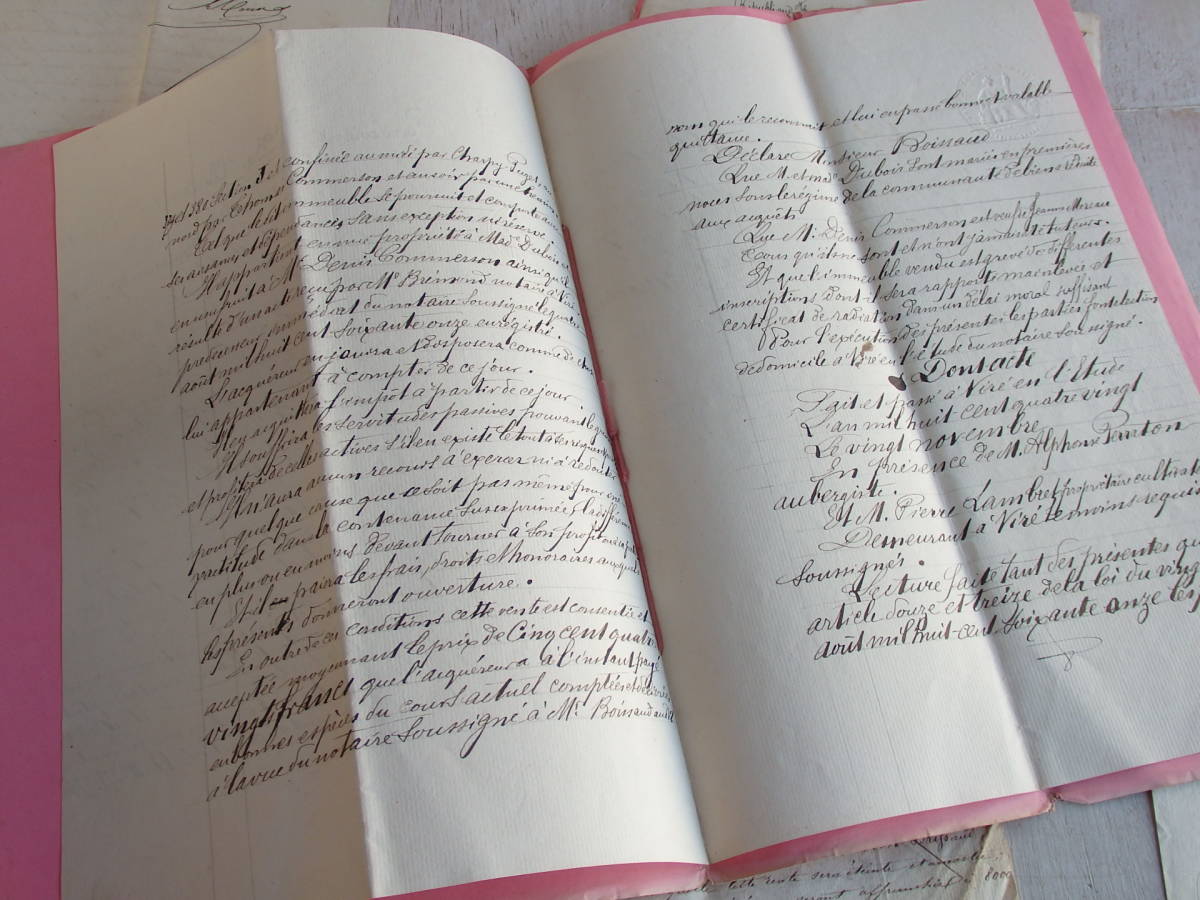 confinée au midi par Charvy Puget au
nord par Thomas Commerson et au soir par
Tel que le dit immeuble se poursuit et comporte avec
ses aisances et dépendances, sans exception ni réserve
Il appartient en nue propriété à Made Dubois et
en usufruit à Mr Denis Commerson ainsi qu'il
résulte d'un acte reçu par Me Brémond notaire à Viré
prédécesseur immédiat du notaire soussigné le quatre
août mil huit cent soixante onze enregistré.
L'acquéreur en jouira et disposera comme de chose
lui appartenant à compter de ce jour.
Il en acquittera l'impôt à partir de ce jour.
Il souffrira les servitudes passives pouvant le grever
et profitera de celles actives s'il en existe le tout à ses risques
Il n'aura aucun recours à exercer ni à redouter
pour quelque cause que ce soit pas même pour
dans la contenance sus exprimée, la différence
en plus ou en moins devant tourner à son profit ou
Et il paira les frais, droits et honoraires auxquels
les présentes donneront ouverture.
En outre de ces conditions cette vente est consentie et
acceptée moyennant le prix de Cinq cent quatre
vingts francs que l'acquéreur a à l'instant payé
en bonnes espèces du cours actuel comptées et délivrées
à la vue du notaire soussigné à Mr Boissaud
nom qui le reconnait et lui en passe bonne et valable
quittance.
Déclare Monsieur Boissaud
Que M. et made Dubois sont mariés en premières
noces sous le régime de la communauté de biens réduite
aux acquêts
Que M. Denis Commerson est veuf de Jeanne Moreau
et qu'ils ne sont et n'ont jamais été tuteurs.
Et que l'immeuble vendu est grevé de différentes
inscriptions dont il sera rapporté mainlevée et
certificat de radiation dans un délai moral suffisant
Pour l'exécution des présentes les parties font élection
de domicile à Viré en l'étude du notaire soussigné.
Dont acte
Fait et passé à Viré en l'Etude
L'an mil huit cent quatre vingt
Le vingt novembre
En présence de M. Alphonse
aubergiste.
Et M. Pierre Lambret propriétaire cultivateur
Demeurant à Viré témoins requis
soussignés.
Lecture faite tant des présentes que
article douze et treize de la loi du vingt
août mil huit-cent soixante onze les
8000